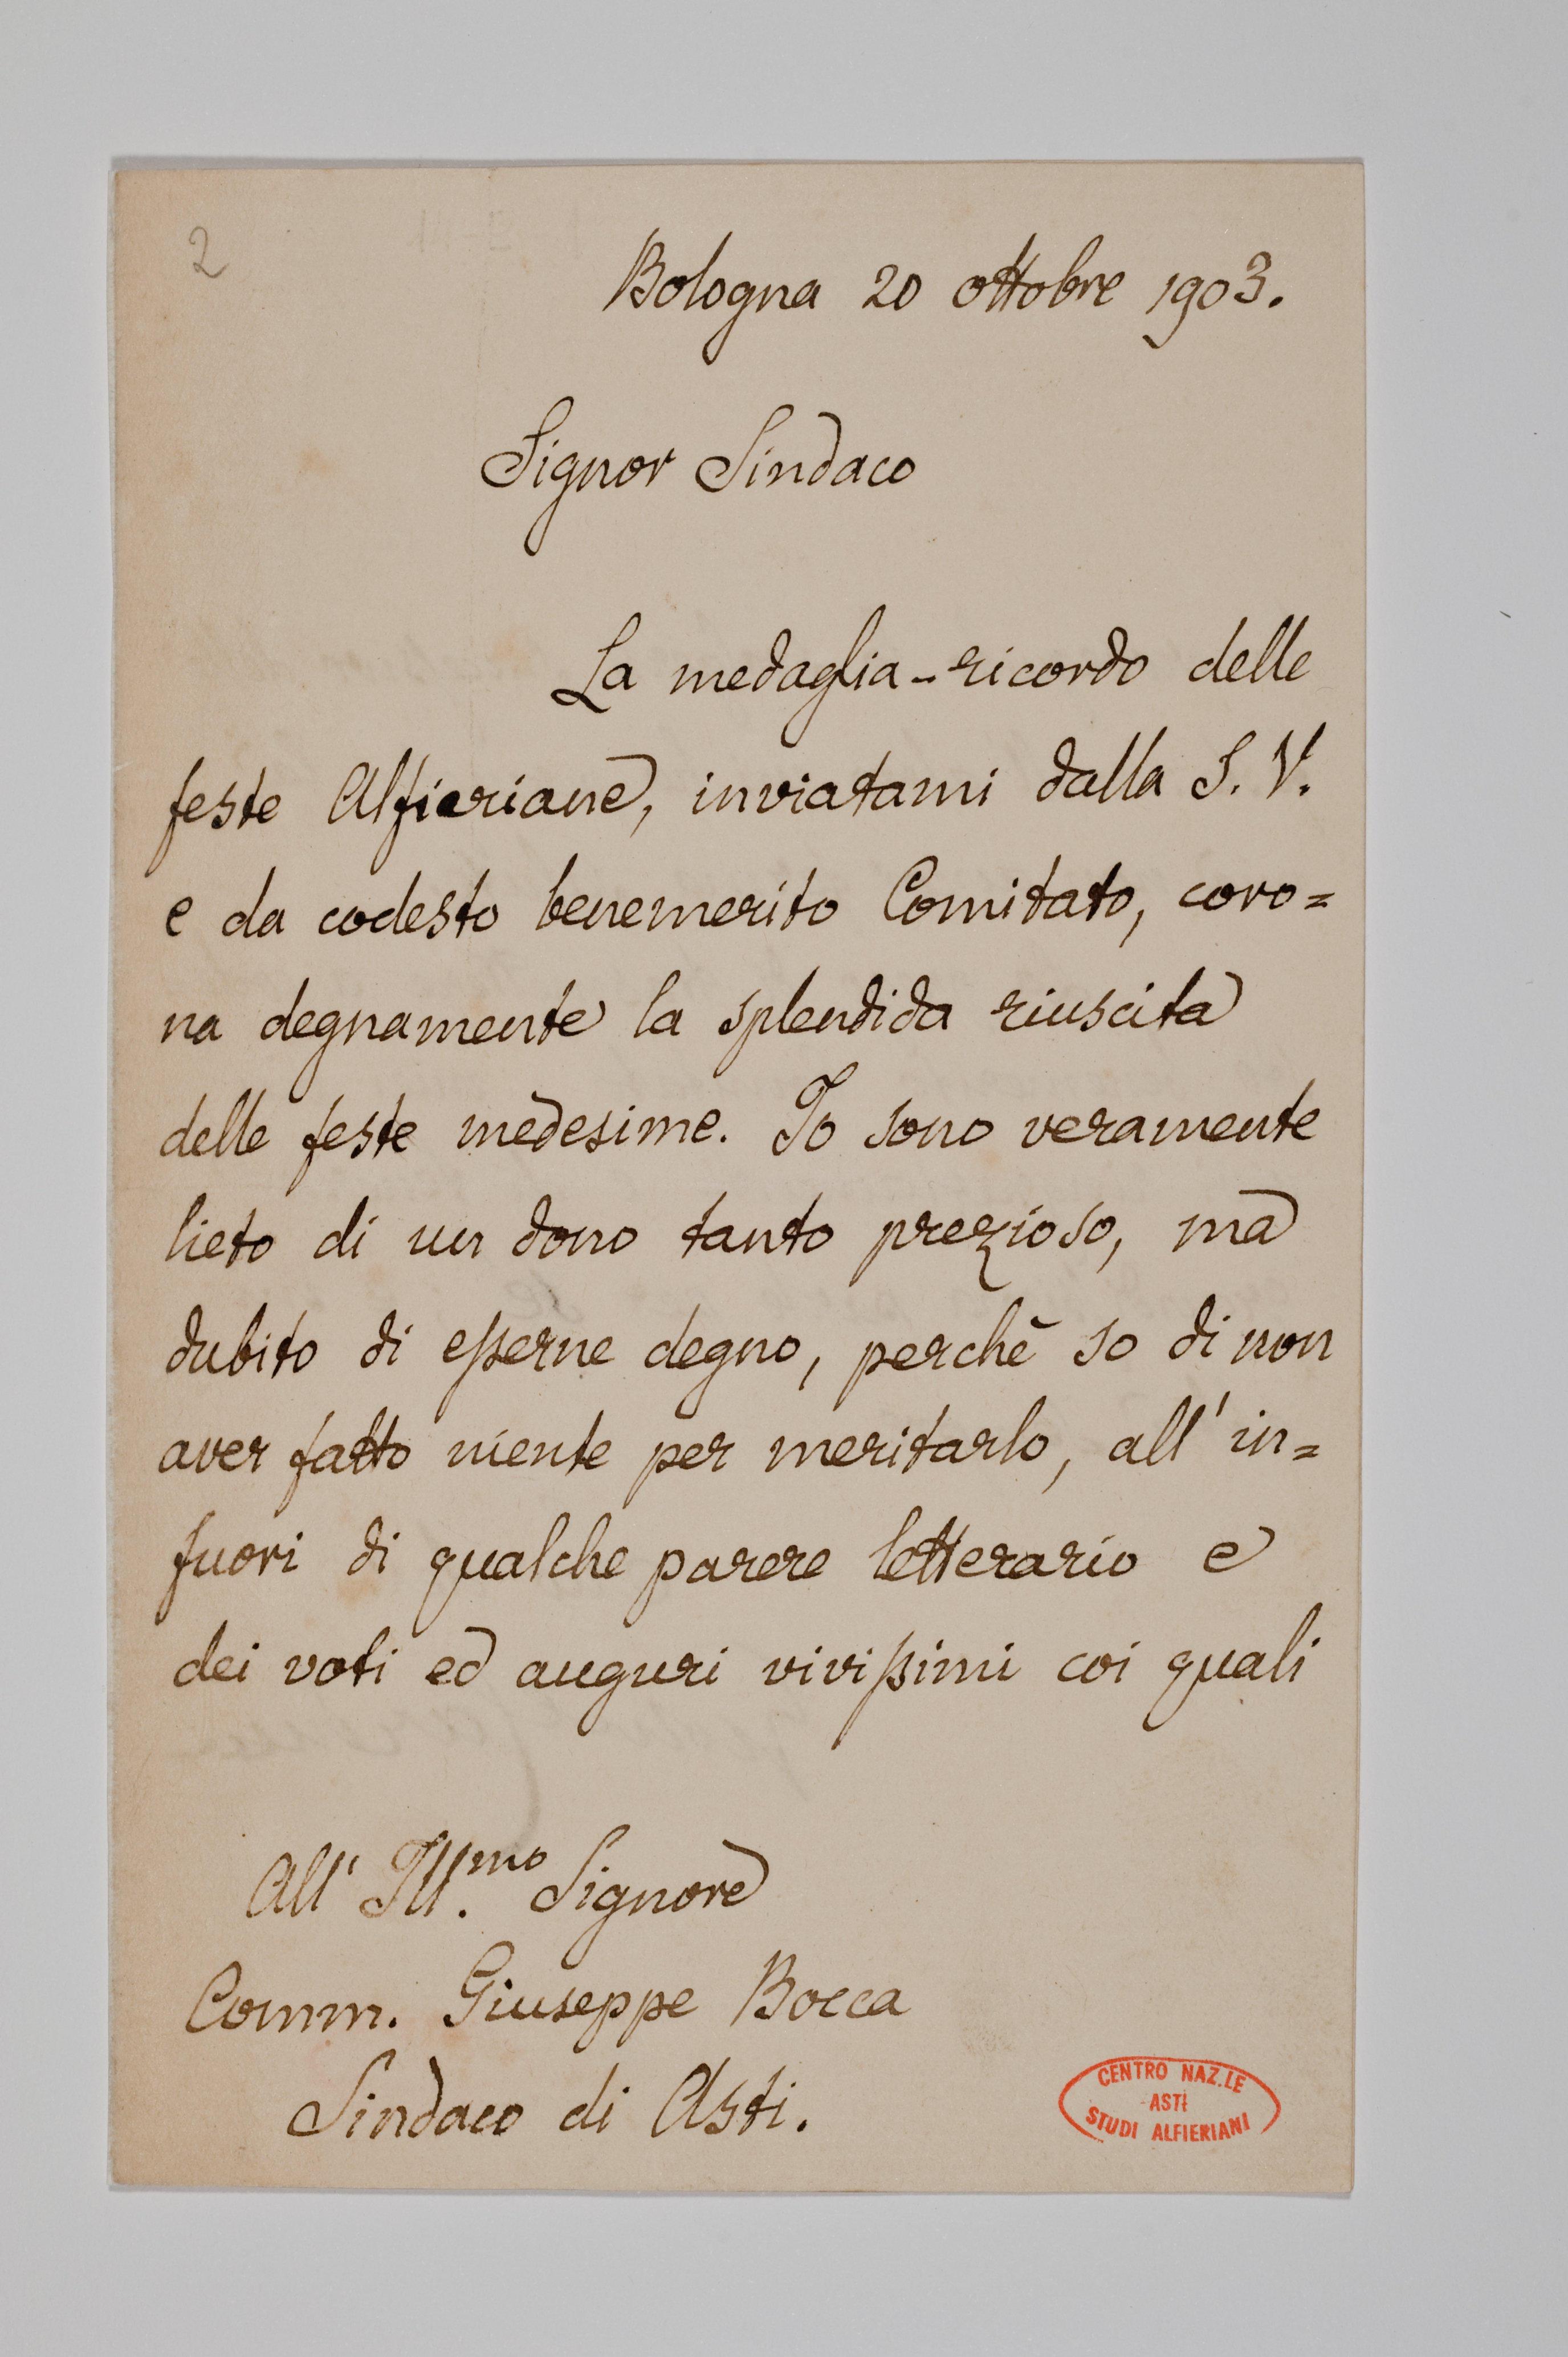 2
Bologna 20 ottobre 1903.
Signor Sindaco
La medaglia-ricordo delle
feste Alfieriane, inviatami dalla S. V.
e da codesto benemerito Comitato, coro=
na degnamente la splendida riuscita
delle feste medesime. Io sono veramente
lieto di un dono tanto prezioso, ma
dubito di esserne degno, perchè so di non
aver fatto niente per meritarlo, all'in=
fuori di qualche parere letterario e
dei voti ed auguri vivissimi coi quali
All' Ill.mo Signore
Comm. Giuseppe Bocca
Sindaco di Asti.
CENTRO NAZ.LE
ASTI
STUDI ALFIERIANI